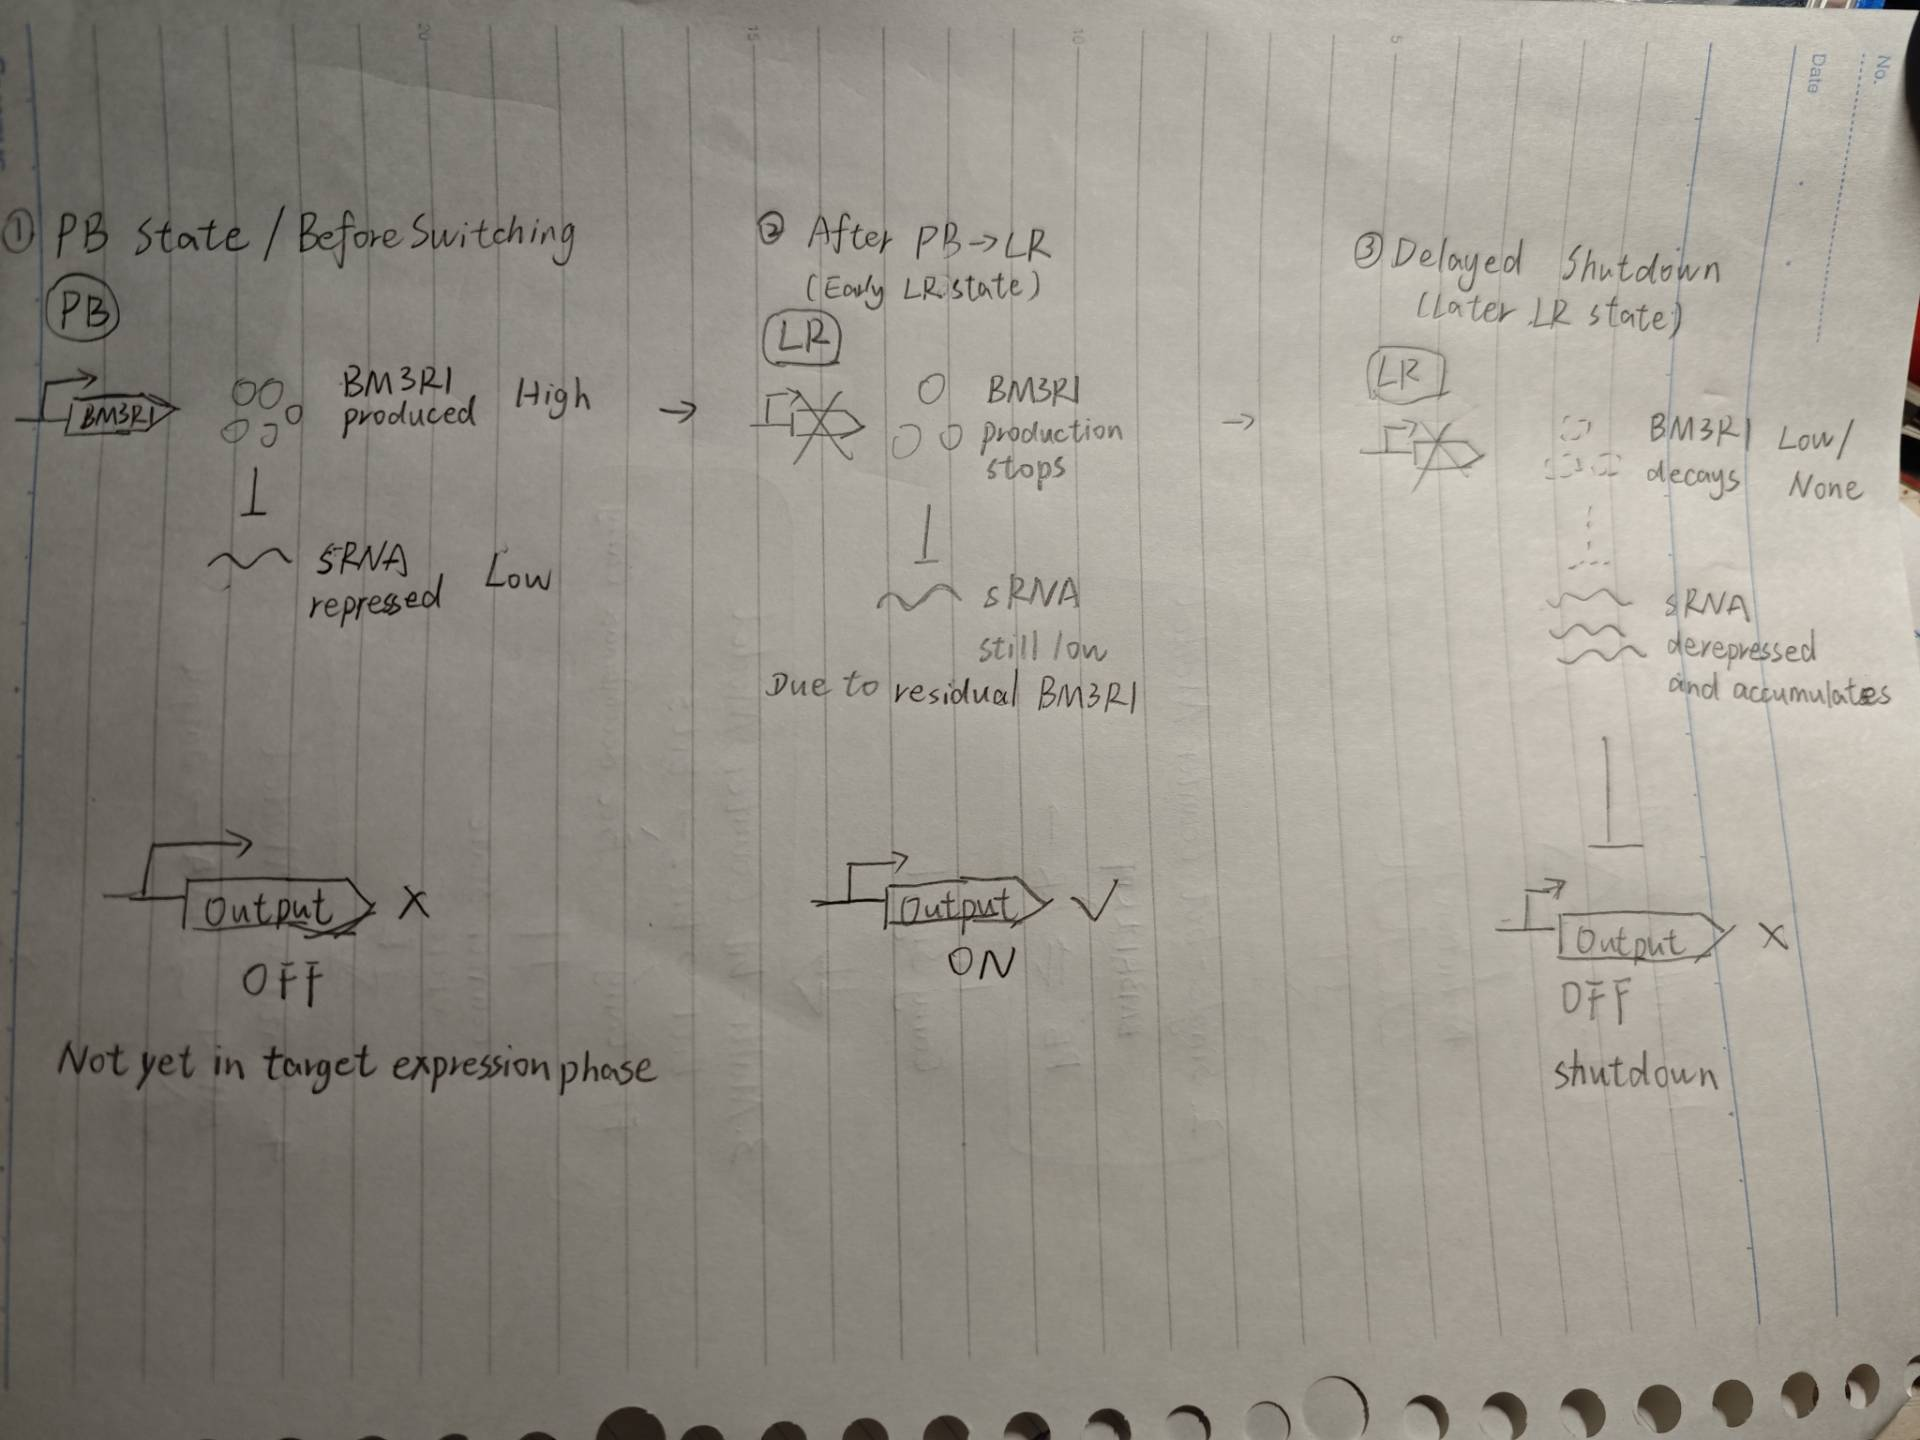 No.
Date
20
15
10
5
① PB state / Before Switching
PB
BM3R1
BM3R1 High
produced
sRNA Low
repressed
Output X
OFF
Not yet in target expression phase
→
② After PB→LR
(Early LR state)
LR
BM3R1
production
stops
sRNA
still low
Due to residual BM3R1
Output ✓
ON
→
③ Delayed Shutdown
(Later LR state)
LR
BM3R1 Low/
decays None
sRNA
derepressed
and accumulates
Output X
OFF
shutdown